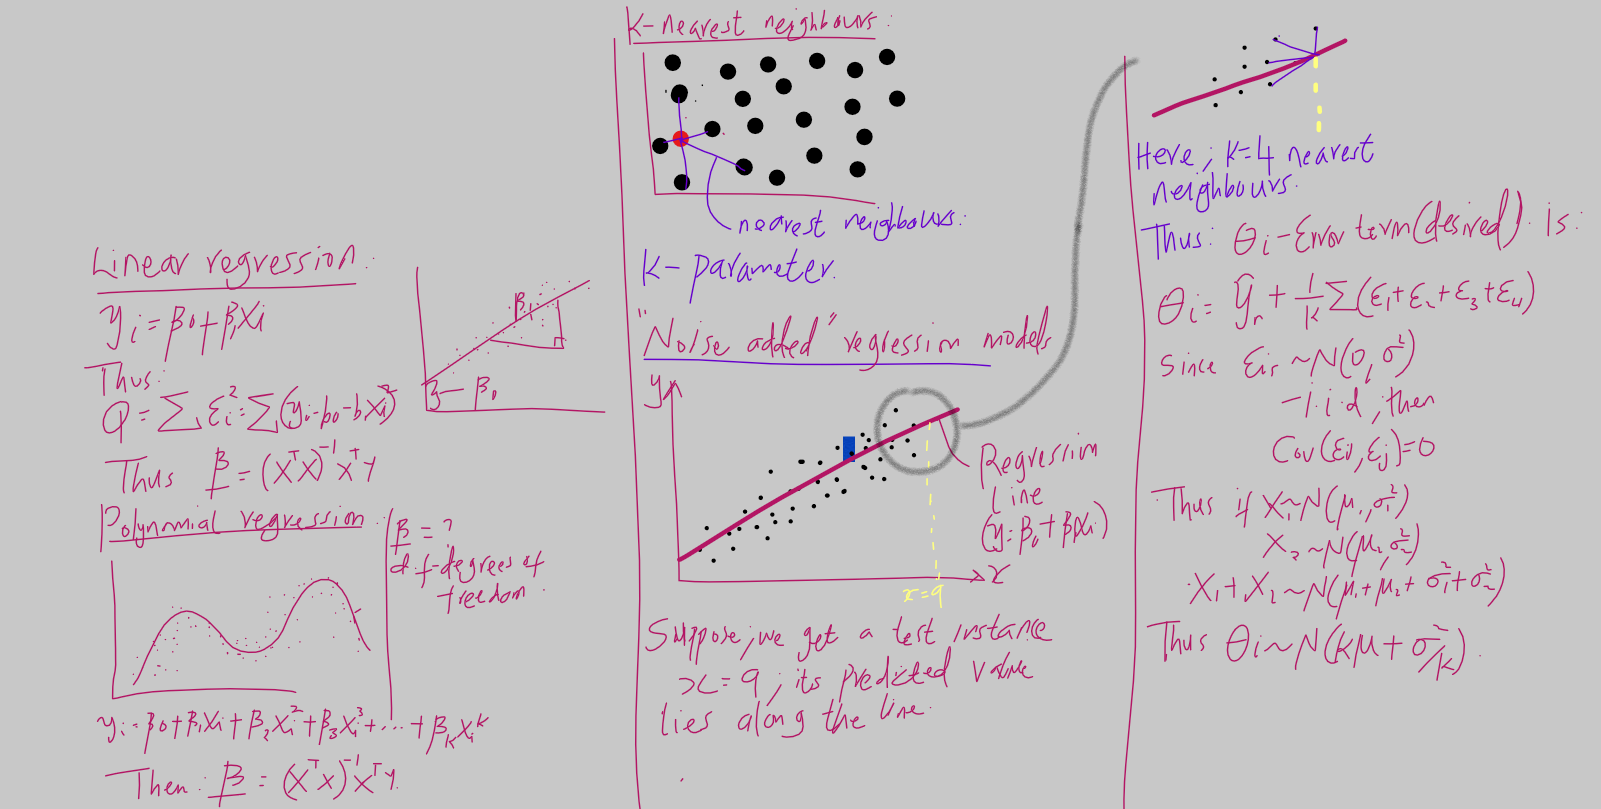 Linear regression.
yᵢ = β₀ + β₁Xᵢ
Thus:
Q = ∑ εᵢ² = ∑(yᵢ - b₀ - bXᵢ)²
Thus β = (XᵀX)⁻¹XᵀY
β₁
β₀
Polynomial regression
β = ?
d.f - degrees of
freedom.
yᵢ = β₀ + β₁Xᵢ + β₂Xᵢ² + β₃Xᵢ³ + ... + βₖXᵢᵏ
Then: β = (XᵀX)⁻¹XᵀY.
K-nearest neighbours:
nearest neighbours:
K - parameter.
"Noise added" regression models
y
Regression
line
(y = β₀ + βXᵢ)
x
x=9
Suppose, we get a test instance
x = 9, its predicted value
lies along the line.
Here, K=4 nearest
neighbours.
Thus: θᵢ - Error term (desired) is:
θᵢ = ȳₙ + 1/K ∑(ε₁+ε₂+ε₃+ε₄)
Since εᵢs ~ N(0, σ²)
- i.i.d, then
Cov(εᵢ, εⱼ) = 0
Thus if X₁ ~ N(μ₁, σ₁²)
X₂ ~ N(μ₂, σ₂²)
X₁ + X₂ ~ N(μ₁ + μ₂ + σ₁² + σ₂²)
Thus θᵢ ~ N(Kμ + σ²/K).